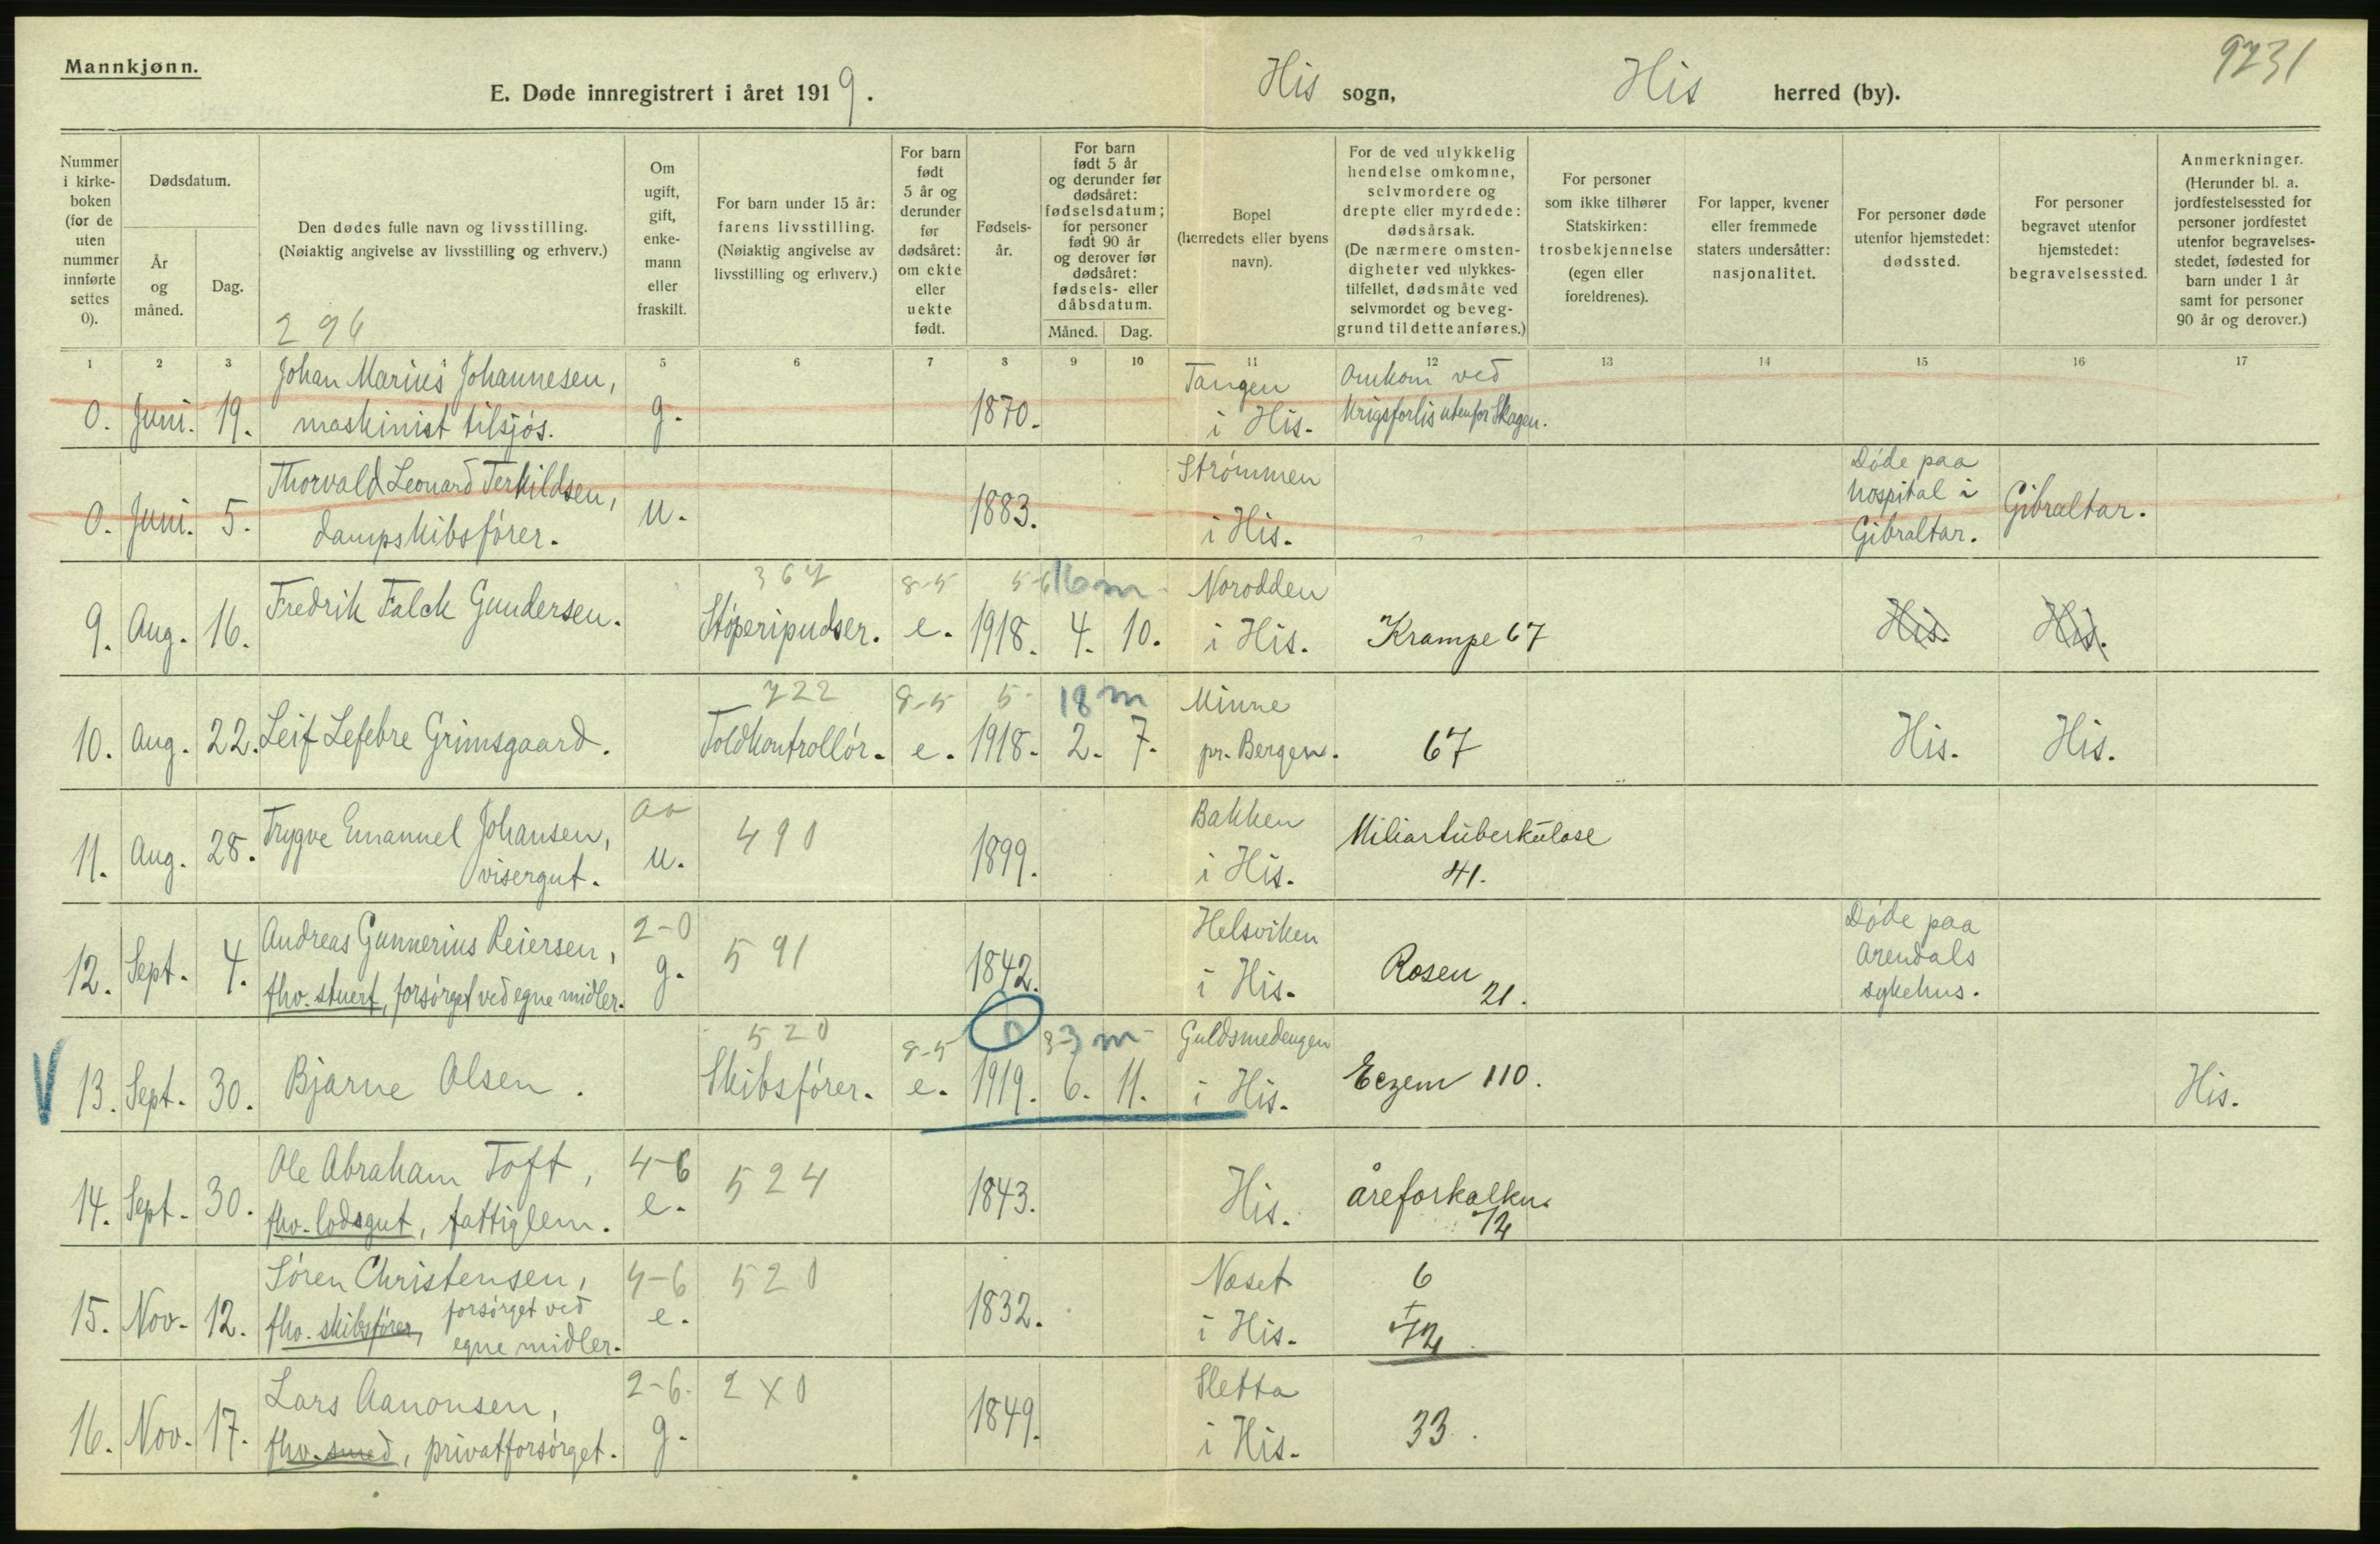 Mannkjønn.
9231
E. Døde innregistrert i året 1919. His sogn, His herred (by).
Nummer i kirke-boken (for de uten nummer innførte settes 0).
Dødsdatum.
År og måned.
Dag.
Den dødes fulle navn og livsstilling.
(Nøiaktig angivelse av livsstilling og erhverv.)
296
Om ugift, gift, enke-mann eller fraskilt.
For barn under 15 år: farens livsstilling.
(Nøiaktig angivelse av livsstilling og erhverv.)
For barn født 5 år og derunder før dødsåret: om ekte eller uekte født.
Fødsels-år.
For barn født 5 år og derunder før dødsåret: fødselsdatum; for personer født 90 år og derover før dødsåret: fødsels- eller dåbsdatum.
Måned. Dag.
Bopel
(herredets eller byens navn).
For de ved ulykkelig hendelse omkomne, selvmordere og drepte eller myrdede: dødsårsak.
(De nærmere omsten-digheter ved ulykkes-tilfellet, dødsmåte ved selvmordet og beveg-grund til dette anføres.)
For personer som ikke tilhører Statskirken: trosbekjennelse (egen eller foreldrenes).
For lapper, kvener eller fremmede staters undersåtter: nasjonalitet.
For personer døde utenfor hjemstedet: dødssted.
For personer begravet utenfor hjemstedet: begravelsessted.
Anmerkninger.
(Herunder bl. a. jordfestelsessted for personer jordfestet utenfor begravelses-stedet, fødested for barn under 1 år samt for personer 90 år og derover.)
1 2 3 5 6 7 8 9 10 11 12 13 14 15 16 17
Johan Marius Johannesen, Tangen Omkom ved
0. Juni. 19. maskinist tilsjøs. g. 1870. i His. Krigsforlis utenfor Skagen.
Thorvald Leonard Terkildsen, Strømmen Døde paa
hospital i
0. Juni. 5. dampskibsfører. u. 1883. i His. Gibraltar. Gibraltar.
367 8-5 5-6 16 m Norodden
9. Aug. 16. Fredrik Falck Gundersen. Støperipudser. e. 1918. 4. 10. i His. Krampe 67 His. His.
722 8-5 5- 18 m Minne
10. Aug. 22. Leif Lefebre Grimsgaard. Toldkontrollør. e. 1918. 2. 7. pr. Bergen. 67 His. His.
Trygve Emanuel Johansen, 490 Bakken Miliartuberkulose
11. Aug. 28. visergut. u. 1899. i His. 41.
Andreas Gunnerius Reiersen, 2-0 591 Helsviken Døde paa
Arendals
12. Sept. 4. fhv. stuert, forsørget ved egne midler. g. 1842. i His. Rosen 21. sykehus.
520 8-5 0 3-3 m Guldsmedengen
V 13. Sept. 30. Bjarne Olsen. Skibsfører. e. 1919. 6. 11. i His. Eczem 110. His.
Ole Abraham Toft, 4-6 524
14. Sept. 30. fhv. lodsgut, fattiglem. e. 1843. His. åreforkalkn. 72
Søren Christensen, 4-6 520 Næset 6
15. Nov. 12. fhv. skibsfører, forsørget ved egne midler. e. 1832. i His. + 72
Lars Aanonsen, 2-6. 2X0 Sletta
16. Nov. 17. fhv. smed, privatforsørget. g. 1849. i His. 33.